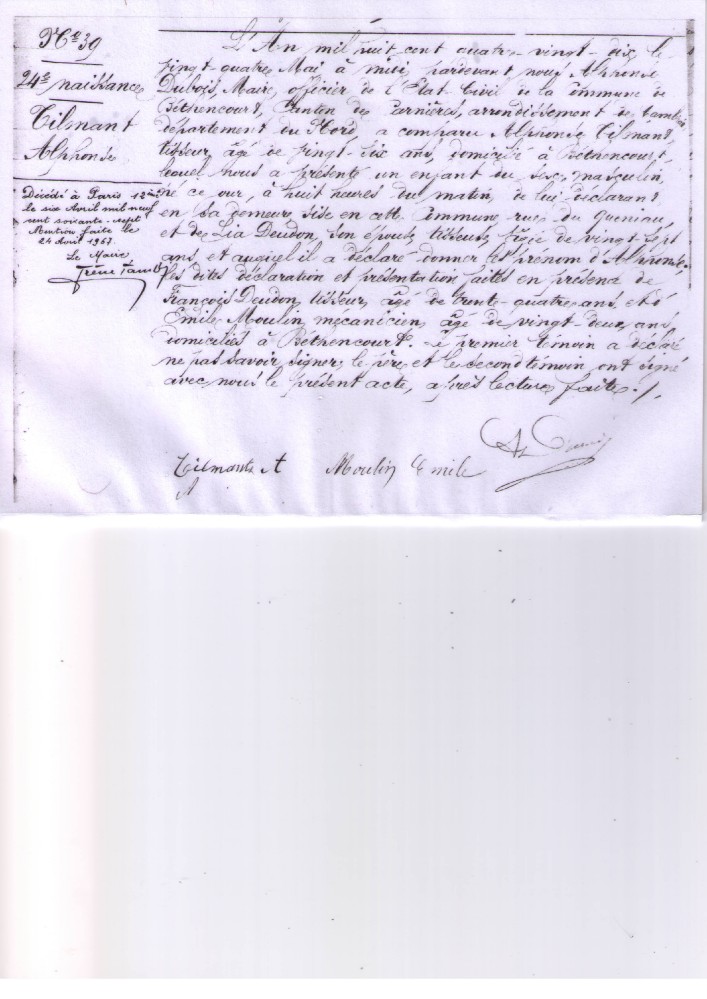 N° 39
24e naissance
Tilmant
Alphonse
Décédé à Paris 12ème
le six Avril mil neuf
cent soixante-sept
Mention faite le
24 Août 1967
Le Maire
L'An mil huit cent quatre-vingt-dix, le
vingt-quatre Mai à midi, pardevant nous Alphonse
Dubois, Maire, officier de l'Etat-Civil de la commune de
Béthencourt, Canton de Carnières, arrondissement de Cambrai
département du Nord, a comparu Alphonse Tilmant,
tisseur, âgé de vingt-six ans, domicilié à Béthencourt,
lequel nous a présenté un enfant du sexe masculin,
né ce jour, à huit heures du matin, de lui déclarant
en sa demeure, sise en cette commune, rue du
et de Lia Deudon, son épouse, tisseuse, âgée de vingt-sept
ans, et auquel il a déclaré donner le prénom d'Alphonse,
les dites déclaration et présentation faites en présence de
François Deudon, tisseur, âgé de trente-quatre ans, et d'
Emile Moulin, mécanicien, âgé de vingt-deux ans,
domiciliés à Béthencourt. Le premier témoin a déclaré
ne pas savoir signer, le père et le second témoin ont signé
avec nous le présent acte, après lecture faite ./.
Tilmant A Moulin Emile
A